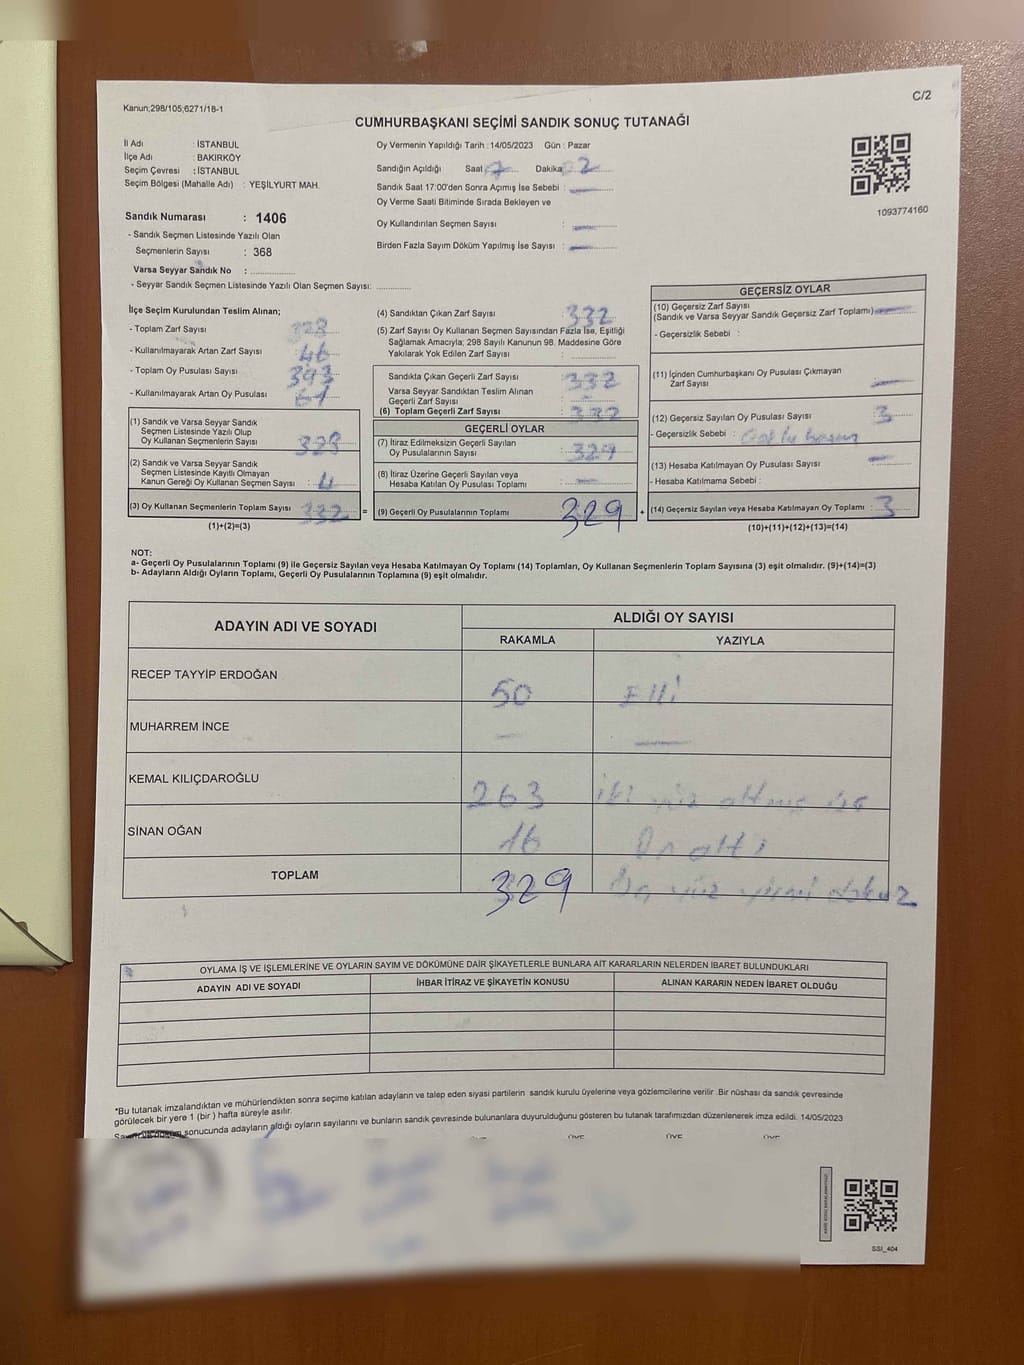 Kanun;298/105;6271/18-1
C/2
CUMHURBAŞKANI SEÇİMİ SANDIK SONUÇ TUTANAĞI
İl Adı : İSTANBUL
İlçe Adı : BAKIRKÖY
Seçim Çevresi : İSTANBUL
Seçim Bölgesi (Mahalle Adı) : YEŞİLYURT MAH.
Oy Vermenin Yapıldığı Tarih :14/05/2023 Gün : Pazar
Sandığın Açıldığı Saat 7 Dakika 02
Sandık Saat 17:00'den Sonra Açımış İse Sebebi : —
Oy Verme Saati Bitiminde Sırada Bekleyen ve
Oy Kullandırılan Seçmen Sayısı : —
Birden Fazla Sayım Döküm Yapılmış İse Sayısı : —
1093774160
Sandık Numarası : 1406
- Sandık Seçmen Listesinde Yazılı Olan
Seçmenlerin Sayısı : 368
Varsa Seyyar Sandık No :
- Seyyar Sandık Seçmen Listesinde Yazılı Olan Seçmen Sayısı:
İlçe Seçim Kurulundan Teslim Alınan;
- Toplam Zarf Sayısı
- Kullanılmayarak Artan Zarf Sayısı 46
- Toplam Oy Pusulası Sayısı 393
- Kullanılmayarak Artan Oy Pusulası 61
(1) Sandık ve Varsa Seyyar Sandık
Seçmen Listesinde Yazılı Olup
Oy Kullanan Seçmenlerin Sayısı : 328
(2) Sandık ve Varsa Seyyar Sandık
Seçmen Listesinde Kayıtlı Olmayan
Kanun Gereği Oy Kullanan Seçmen Sayısı : 4
(3) Oy Kullanan Seçmenlerin Toplam Sayısı : 332 =
(1)+(2)=(3)
(4) Sandıktan Çıkan Zarf Sayısı : 332
(5) Zarf Sayısı Oy Kullanan Seçmen Sayısından Fazla İse, Eşitliği
Sağlamak Amacıyla; 298 Sayılı Kanunun 98. Maddesine Göre
Yakılarak Yok Edilen Zarf Sayısı :
Sandıkta Çıkan Geçerli Zarf Sayısı : 332
Varsa Seyyar Sandıktan Teslim Alınan
Geçerli Zarf Sayısı : —
(6) Toplam Geçerli Zarf Sayısı : 332
GEÇERLİ OYLAR
(7) İtiraz Edilmeksizin Geçerli Sayılan
Oy Pusulalarının Sayısı : 329
(8) İtiraz Üzerine Geçerli Sayılan veya
Hesaba Katılan Oy Pusulası Toplamı : —
(9) Geçerli Oy Pusulalarının Toplamı : 329 +
GEÇERSİZ OYLAR
(10) Geçersiz Zarf Sayısı
(Sandık ve Varsa Seyyar Sandık Geçersiz Zarf Toplamı) —
- Geçersizlik Sebebi :
(11) İçinden Cumhurbaşkanı Oy Pusulası Çıkmayan
Zarf Sayısı : —
(12) Geçersiz Sayılan Oy Pusulası Sayısı : 3
- Geçersizlik Sebebi :
(13) Hesaba Katılmayan Oy Pusulası Sayısı : —
- Hesaba Katılmama Sebebi :
(14) Geçersiz Sayılan veya Hesaba Katılmayan Oy Toplamı : 3
(10)+(11)+(12)+(13)=(14)
NOT:
a- Geçerli Oy Pusulalarının Toplamı (9) ile Geçersiz Sayılan veya Hesaba Katılmayan Oy Toplamı (14) Toplamları, Oy Kullanan Seçmenlerin Toplam Sayısına (3) eşit olmalıdır. (9)+(14)=(3)
b- Adayların Aldığı Oyların Toplamı, Geçerli Oy Pusulalarının Toplamına (9) eşit olmalıdır.
ADAYIN ADI VE SOYADI ALDIĞI OY SAYISI
RAKAMLA YAZIYLA
RECEP TAYYİP ERDOĞAN 50 Elli
MUHARREM İNCE — —
KEMAL KILIÇDAROĞLU 263 iki yüz altmış üç
SİNAN OĞAN 16 On altı
TOPLAM 329 Üç yüz yirmi dokuz
OYLAMA İŞ VE İŞLEMLERİNE VE OYLARIN SAYIM VE DÖKÜMÜNE DAİR ŞİKAYETLERLE BUNLARA AİT KARARLARIN NELERDEN İBARET BULUNDUKLARI
ADAYIN ADI VE SOYADI İHBAR İTİRAZ VE ŞİKAYETİN KONUSU ALINAN KARARIN NEDEN İBARET OLDUĞU
*Bu tutanak imzalandıktan ve mühürlendikten sonra seçime katılan adayların ve talep eden siyasi partilerin sandık kurulu üyelerine veya gözlemcilerine verilir .Bir nüshası da sandık çevresinde
görülecek bir yere 1 (bir ) hafta süreyle asılır.
sonucunda adayların aldığı oyların sayılarını ve bunların sandık çevresinde bulunanlara duyurulduğunu gösteren bu tutanak tarafımızdan düzenlenerek imza edildi. 14/05/2023
ÜYE ÜYE ÜYE ÜYE
SSI_404